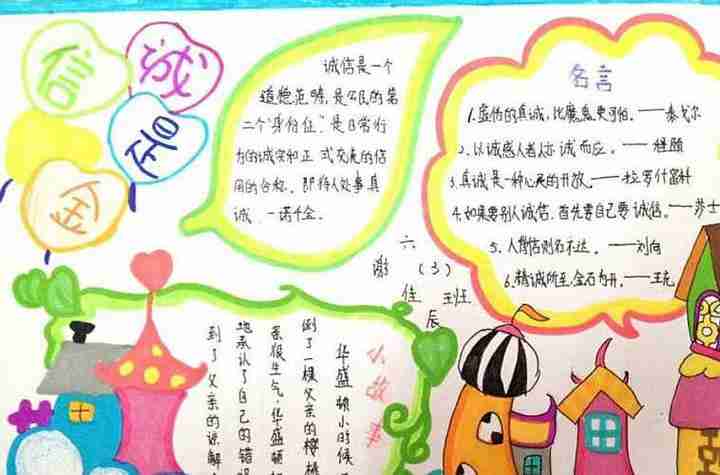 诚
信
是
金
诚信是一个
道德范畴,是公民的第
二个"身份证",是日常行
为的诚实和正式交流的信
用的合称。即待人处事真
诚、一诺千金。
名言
1.虚伪的真诚,比魔鬼更可怕。——泰戈尔
2.以诚感人者人亦诚而应。——程颐
3.真诚是一种心灵的开放。——拉罗什富科
4.如果要别人诚信,首先要自己要诚信。——莎士
5.人背信则名不达。——刘向
6.精诚所至,金石为开。——王充
六(3)班
谢佳辰
小故事
华盛顿小时候
倒了一棵父亲的樱桃
亲很生气,华盛顿
地承认了自己的错
到了父亲的谅解